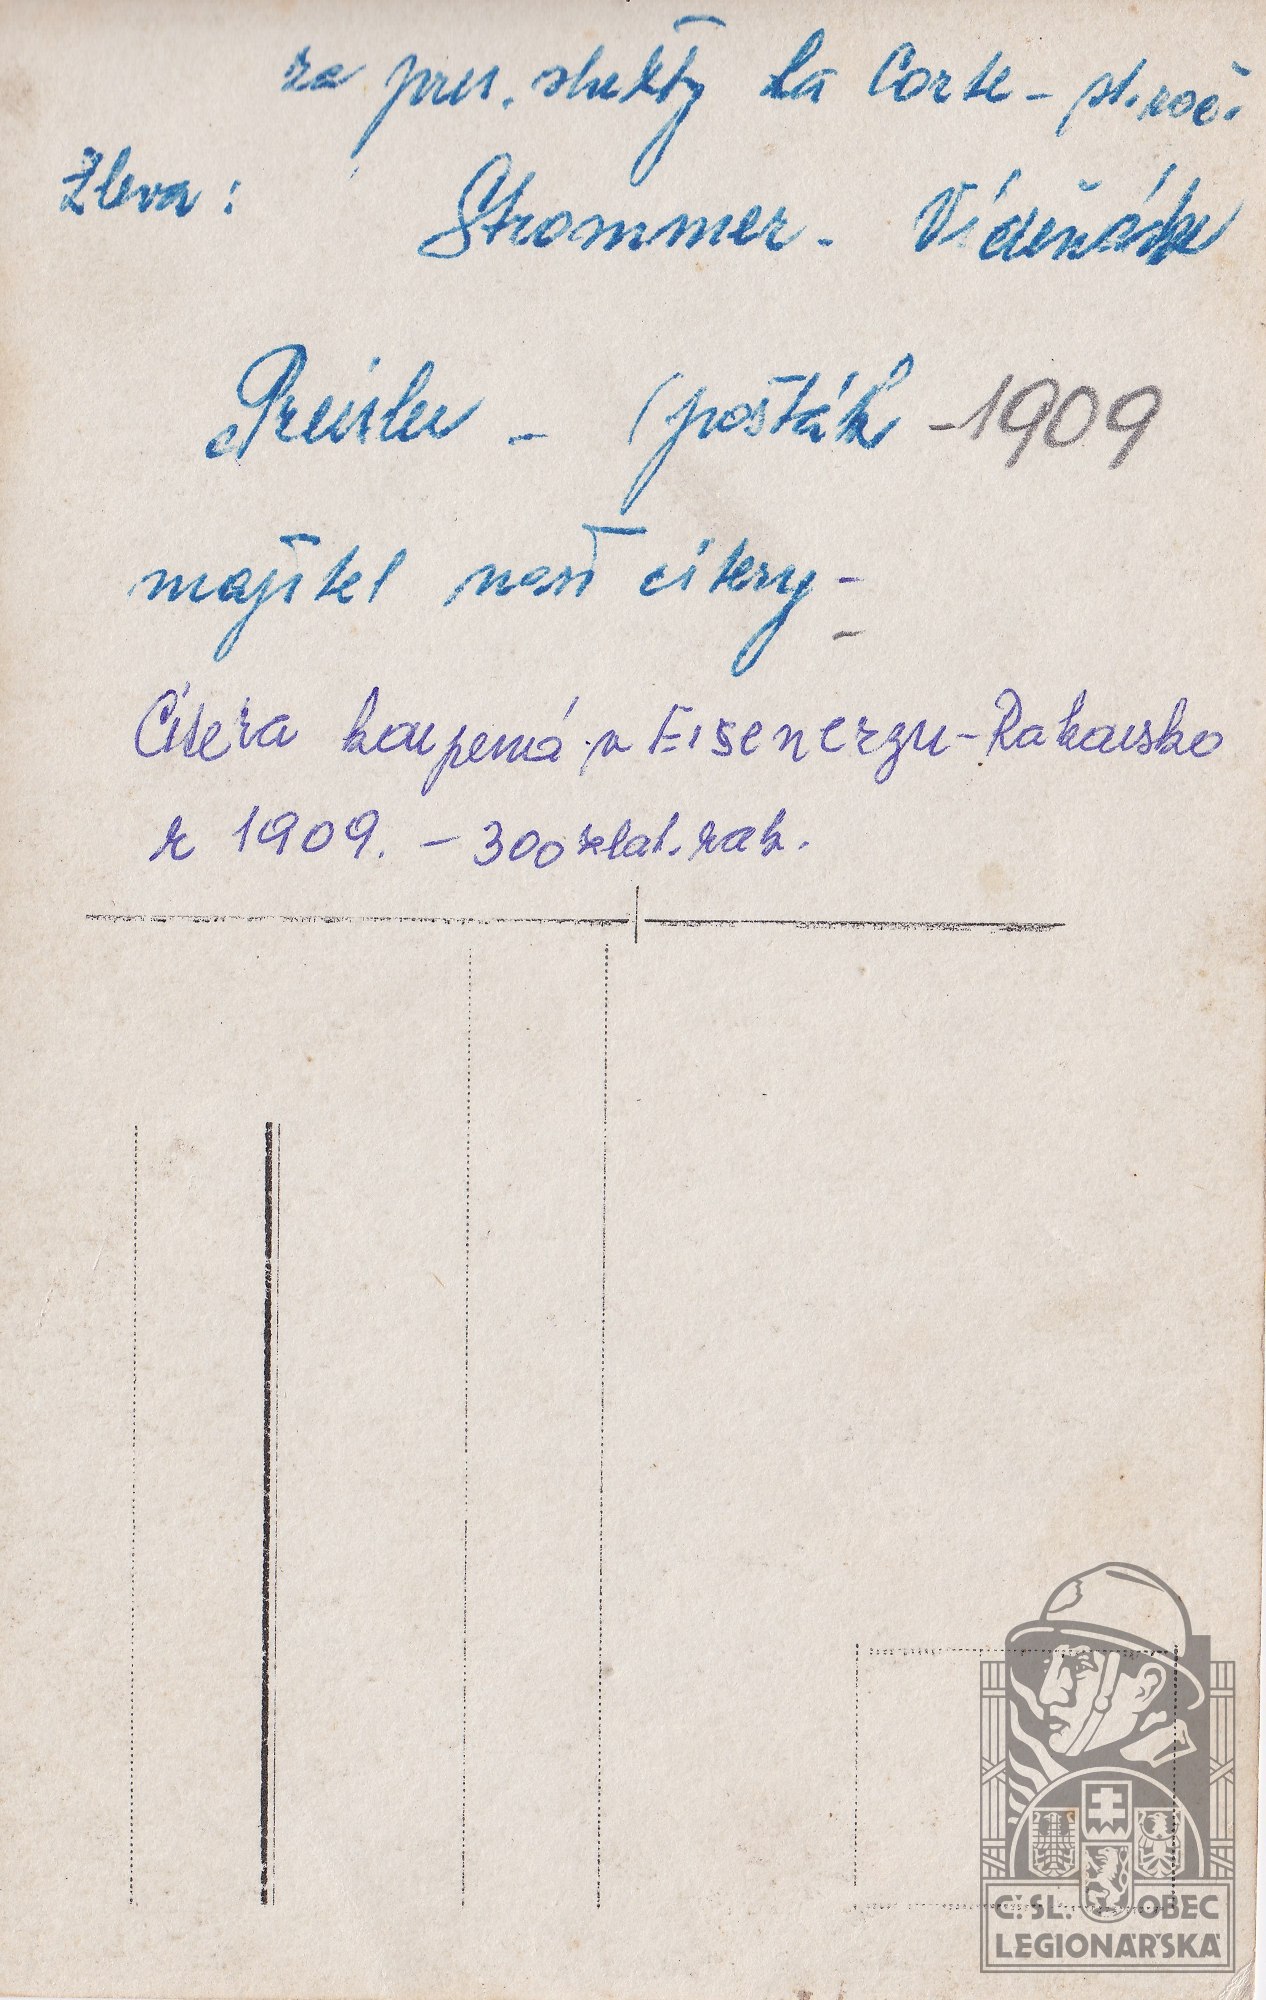 za pres. sletěty La Corte - st. roč.
Zleva: Strommer - Vídeňák
Preisler - (pošťák - 1909
majitel naší citery -
Citera koupená v Eisenerzu - Rakousko
r 1909. - 300 zlat. rak.
Č. SL. OBEC
LEGIONÁŘSKÁ